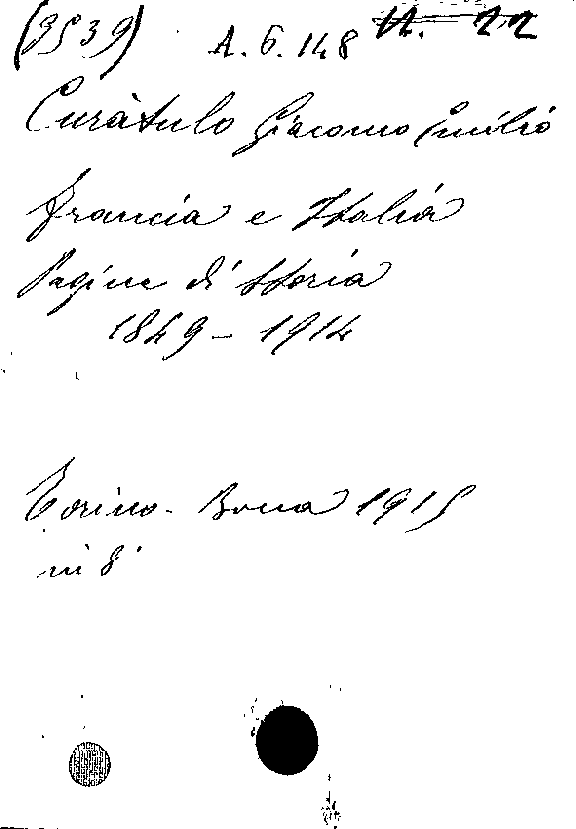 (3539) A. 6. 148
Curàtulo Giacomo Emilio
Francia e Italia
Pagine di storia
1849 - 1914
Torino - Bona 1915
in 8°